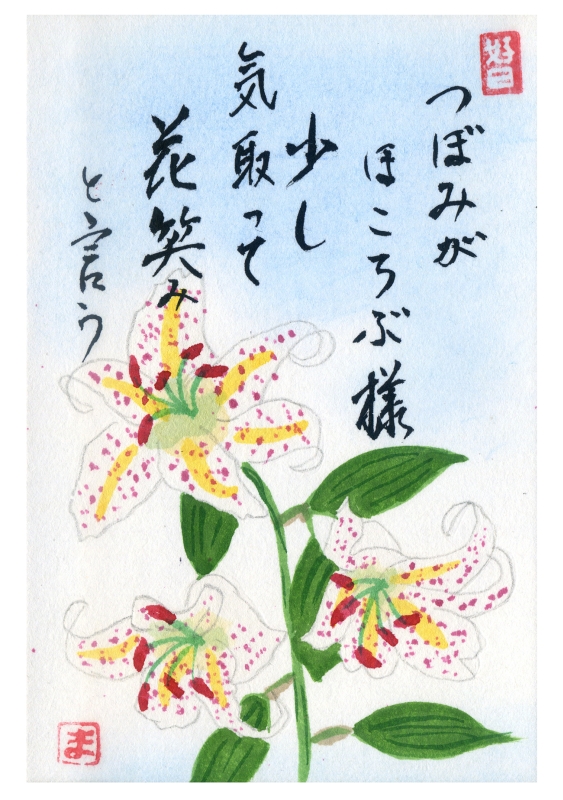 つぼみが
ほころぶ様
少し
気取って
花笑み
と言う
好二
ま